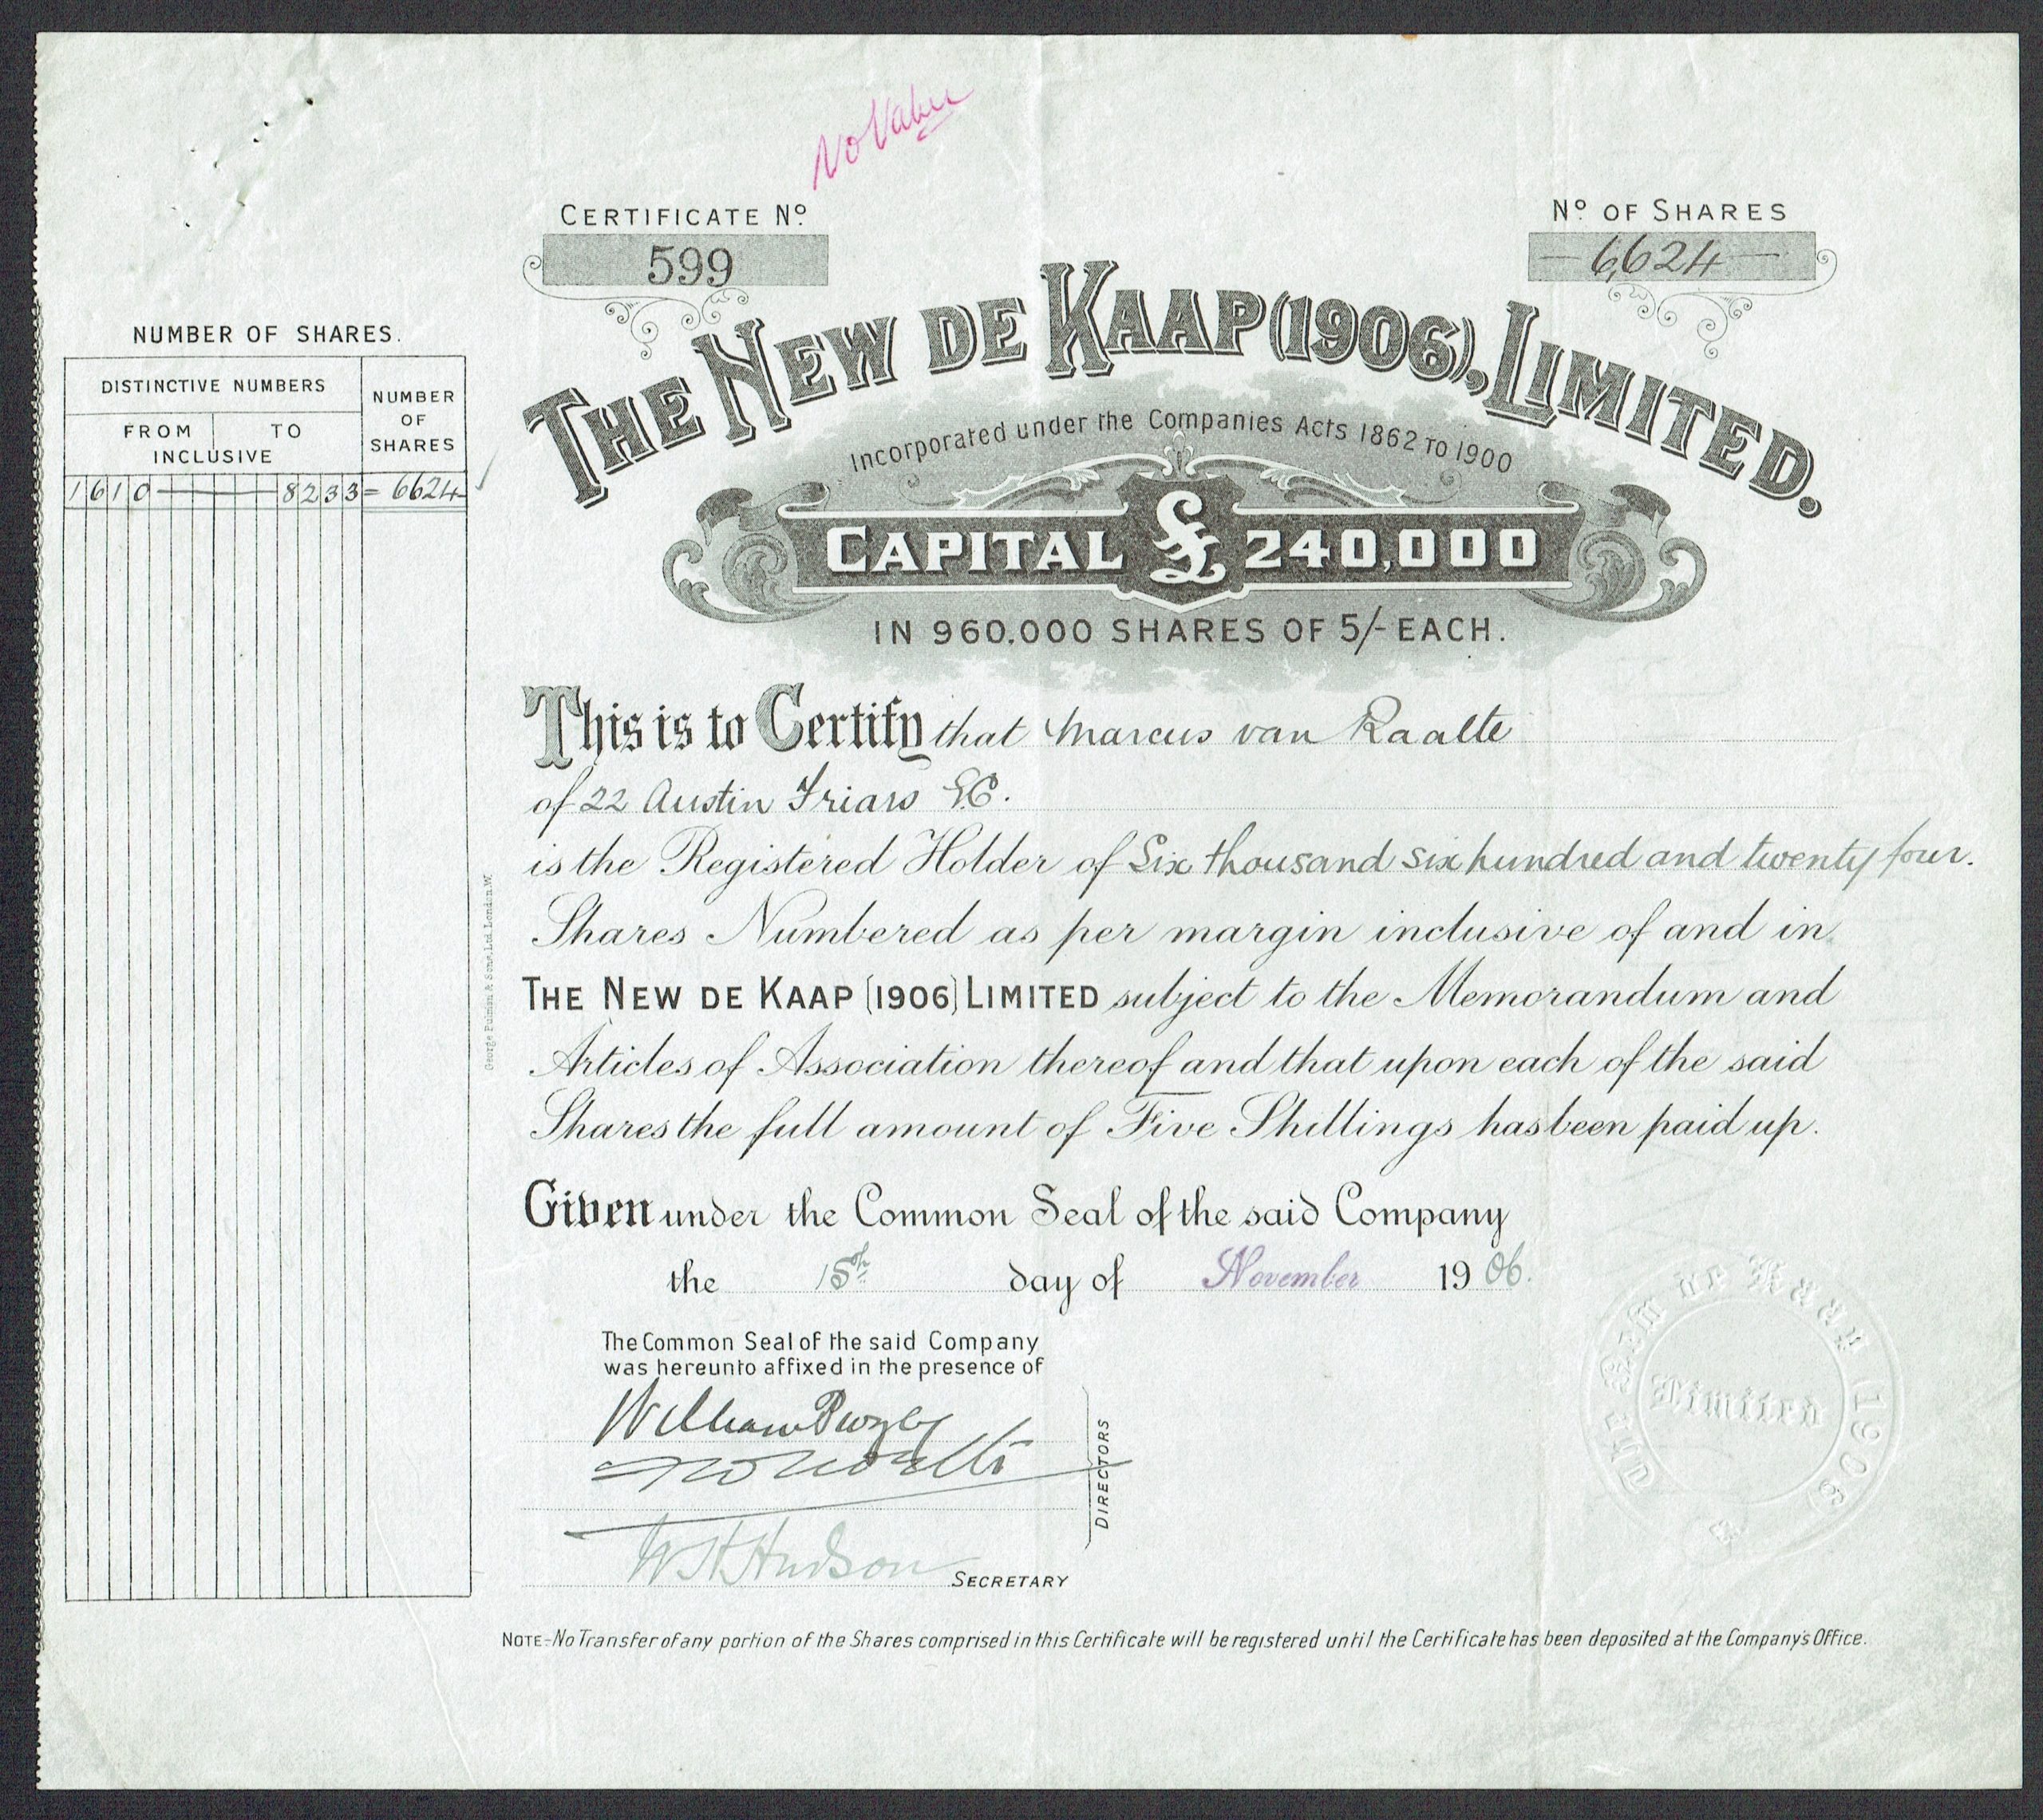 No Value
CERTIFICATE Nº
599
Nº OF SHARES
6624
NUMBER OF SHARES.
DISTINCTIVE NUMBERS
FROM TO
INCLUSIVE
NUMBER
OF
SHARES
1610 — 8233 = 6624
THE NEW DE KAAP (1906), LIMITED.
Incorporated under the Companies Acts 1862 TO 1900
CAPITAL £240,000
IN 960,000 SHARES OF 5/- EACH.
This is to Certify that Marcus van Raalte
of 22 Austin Friars E.C.
is the Registered Holder of Six thousand six hundred and twenty four.
Shares Numbered as per margin inclusive of and in
THE NEW DE KAAP (1906) LIMITED subject to the Memorandum and
Articles of Association thereof and that upon each of the said
Shares the full amount of Five Shillings has been paid up.
Given under the Common Seal of the said Company
the 15th day of November 1906.
The Common Seal of the said Company
was hereunto affixed in the presence of
William
DIRECTORS
W H Hudson SECRETARY
The New de Kaap (1906)
Limited
NOTE:- No Transfer of any portion of the Shares comprised in this Certificate will be registered until the Certificate has been deposited at the Company's Office.
George Pulman & Sons, Ltd. London, W.